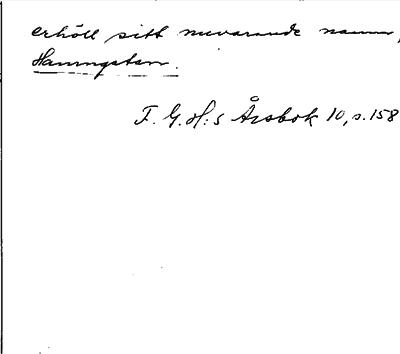 erhöll sitt nuvarande namn,
Hamngatan.
F. G. H:s Årsbok 10, s. 158